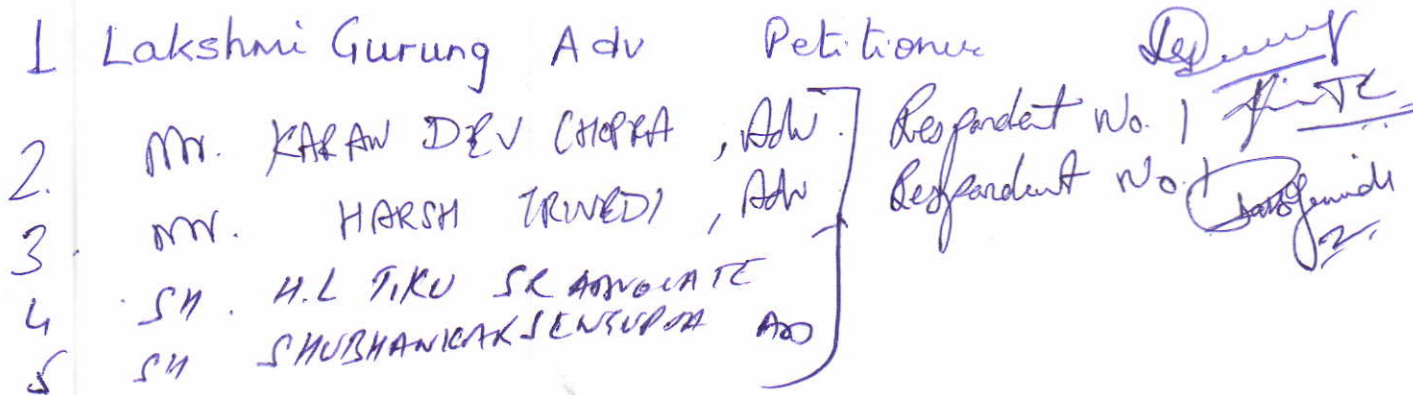 1 Lakshmi Gurung Adv Petitioner
2. Mr. KARAN DEV CHOPRA, Adv. Respondent No. 1
3. Mr. HARSH TRIVEDI, Adv Respondent No. 1
4 SH. H.L TIKU SR ADVOCATE
5 SH SHUBHANKAR SENGUPTA Adv